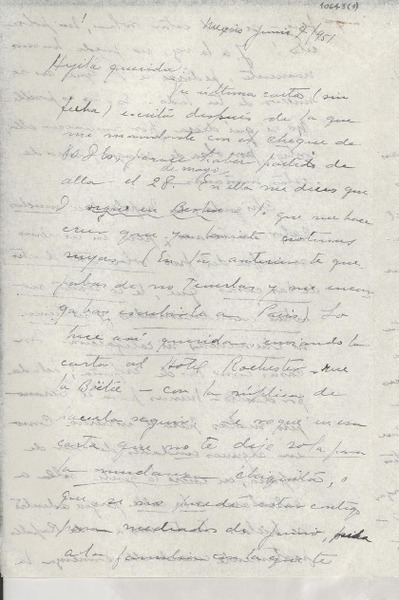 Mexico Junio 9/951
Hijita querida:
Tu última carta (sin
fecha) escrita después de la que
me mandaste con el cheque de
80 Dls. parece haber partido de
de mayo
alla el 28. En ella me dices que
D. sigue en Berlin lo que me hace
creer que ya tuviste noticias
suyas (En tu anterior te que
jabas de no tenerlas y me encar
gabas escribirle a Paris) Lo
hice así querida enviando la
carta al Hotel Rochester Rue
la Böetie — con la súplica de
hacerla seguir. Le rogué en esa
carta que no te deje sola para
la mudanza chiquita, o
que si no puede estar contigo
para mediados de junio, pida
a la familia con la que te